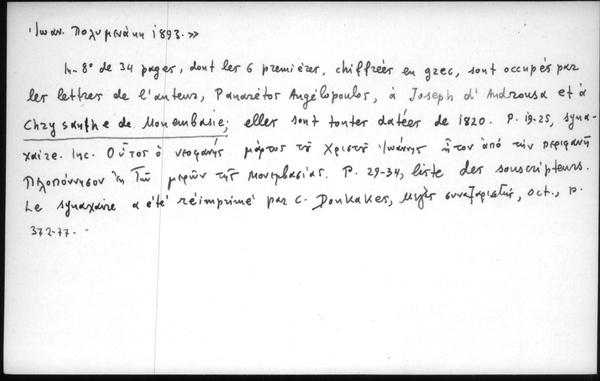 Ἰωαν. Πολυμενάκη 1893.»
In-8° de 34 pages, dont les 6 premières, chiffrées en grec, sont occupés par
les lettres de l'auteur, Panarétos Angélopoulos, à Joseph d'Androusa et à
Chrysanthe de Monembasie; elles sont toutes datées de 1820. P. 19-25, syna-
xaire. Inc. Οὗτος ὁ νεοφανής μάρτυς τοῦ Χριστοῦ Ἰωάννης ἦτον ἀπό τὴν περιφανῆ
Πελοπόννησον ἐκ τῶν μερῶν τῆς Μονεμβασίας. P. 29-34, liste des souscripteurs.
Le synaxaire a été réimprimé par C. Doukakes, Μέγας συναξαριστής, oct., p.
372-77.